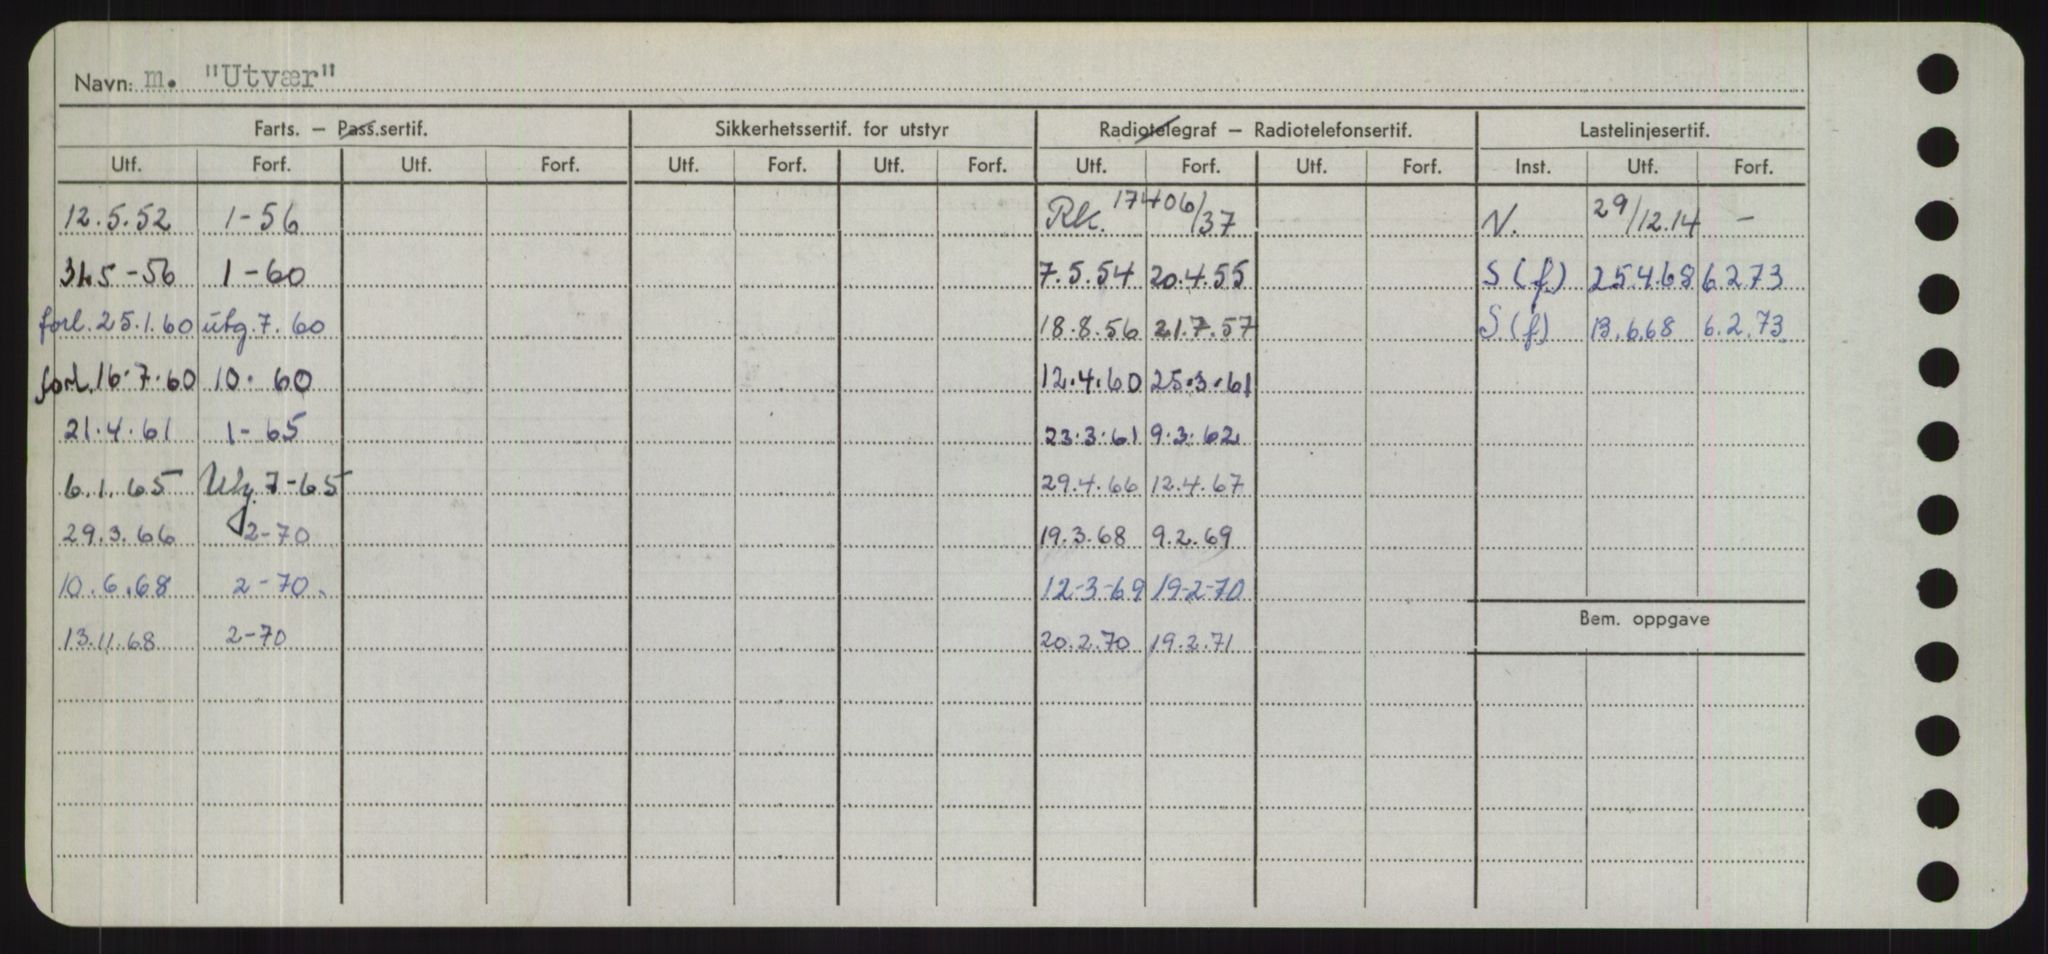 Navn: m. "Utvær"
Farts. – Pass.sertif. Sikkerhetssertif. for utstyr Radiotelegraf – Radiotelefonsertif. Lastelinjesertif.
Utf. Forf. Utf. Forf. Utf. Forf. Utf. Forf. Utf. Forf. Utf. Forf. Inst. Utf. Forf.
12.5.52 1-56 Rk. 17406/37 N. 29/12.14 -
31.5-56 1-60 7.5.54 20.4.55 S(f.) 25.4.68 6.2.73
forl. 25.1.60 utg. 7. 60 18.8.56 21.7.57 S.(f) 13.6.68 6.2.73.
forl. 16.7.60 10. 60 12.4.60 25.3.61
21.4.61 1-65 23.3.61 9.3.62
6.1.65 Utg. 7-65 29.4.66 12.4.67
29.3.66 2-70 19.3.68 9.2.69
10.6.68 2-70. 12-3-69 19-2-70
13.11.68 2-70 20.2.70 19.2.71
Bem. oppgave